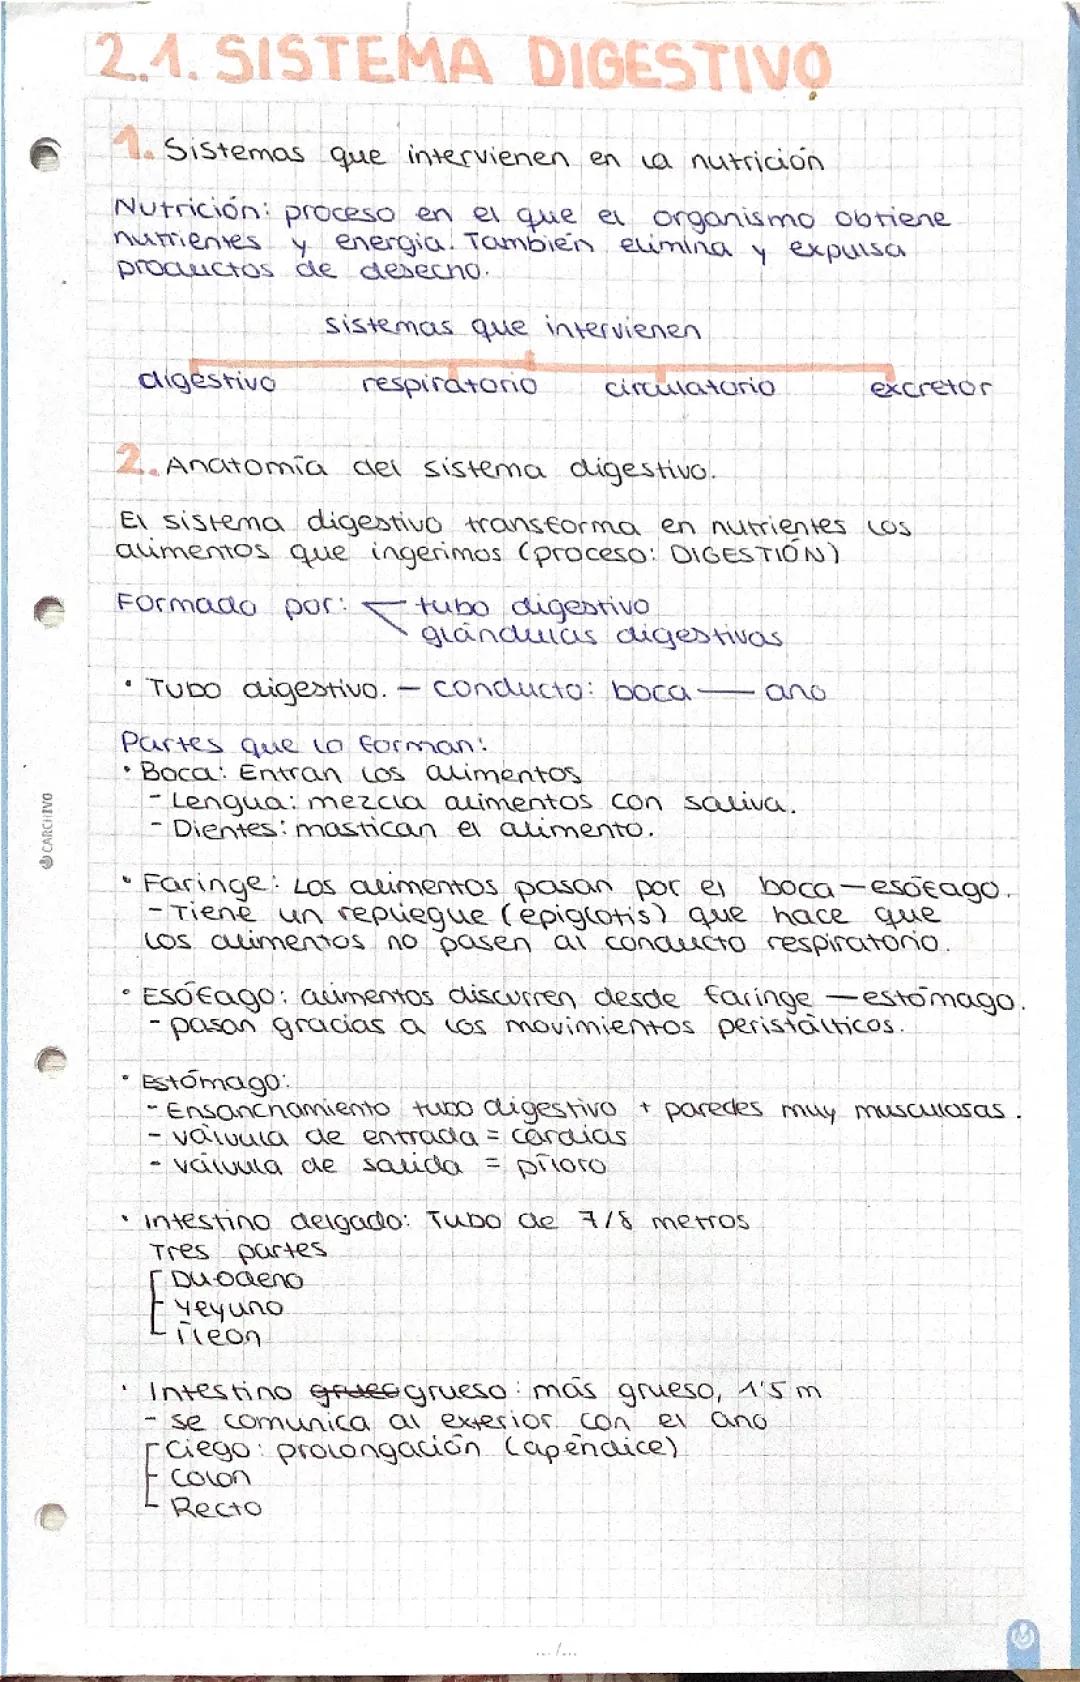 2.1. SISTEMA DIGESTIVO
1. Sistemas que intervienen en la nutrición
Nutrición: proceso en el que el organismo obtiene
nutrientes y energía. También elimina y expulsa
productos de desecho.
sistemas que intervienen
digestivo respiratorio circulatorio excretor
2. Anatomía del sistema digestivo.
El sistema digestivo transforma en nutrientes los
alimentos que ingerimos (proceso: DIGESTIÓN)
Formado por: tubo digestivo
glándulas digestivas
• Tubo digestivo. — conducto: boca — ano
Partes que lo forman:
• Boca: Entran los alimentos
- Lengua: mezcla alimentos con saliva.
- Dientes: mastican el alimento.
• Faringe: Los alimentos pasan por el boca — esófago.
- Tiene un repliegue (epiglotis) que hace que
los alimentos no pasen al conducto respiratorio.
• Esófago: alimentos discurren desde faringe — estómago.
- pasan gracias a los movimientos peristálticos.
• Estómago:
- Ensanchamiento tubo digestivo + paredes muy musculosas.
- válvula de entrada = cardias
- válvula de salida = píloro
• Intestino delgado: Tubo de 7/8 metros
Tres partes
Duodeno
Yeyuno
Íleon
• Intestino grueso: más grueso, 1'5 m
- se comunica al exterior con el ano
Ciego: prolongación (apéndice)
Colon
Recto
CARCHIVO
.../...